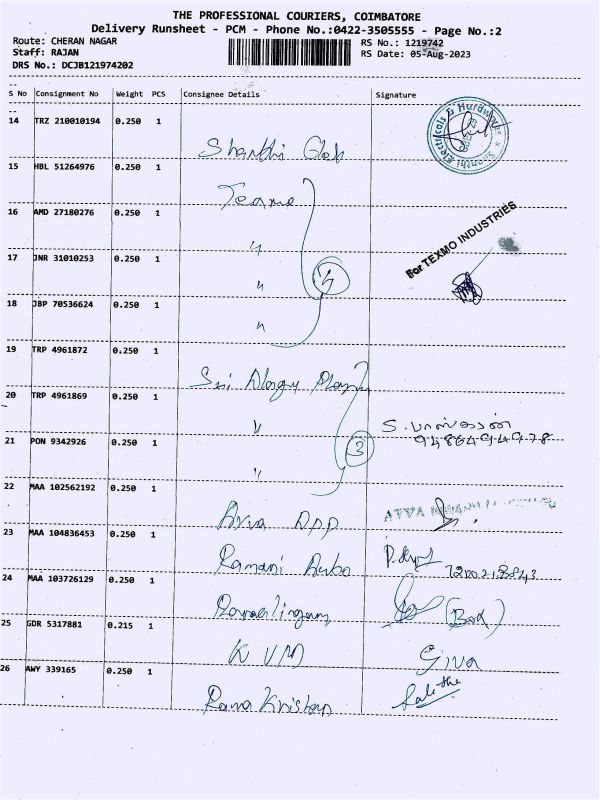 THE PROFESSIONAL COURIERS, COIMBATORE
Delivery Runsheet - PCM - Phone No.:0422-3505555 - Page No.:2
Route: CHERAN NAGAR
Staff: RAJAN
DRS No.: DCJB121974202
RS No.: 1219742
RS Date: 05-Aug-2023
S No Consignment No Weight PCS Consignee Details Signature
14 TRZ 210010194 0.250 1
Shanthi
Shanthi Electricals & Hardwares
15 HBL 51264976 0.250 1
Texmo
16 AMD 27180276 0.250 1
"
For TEXMO INDUSTRIES
17 JNR 31010253 0.250 1
"
4
18 JBP 70536624 0.250 1
"
19 TRP 4961872 0.250 1
Sri
20 TRP 4961869 0.250 1
"
S. பாஸ்கரன்
9486494978
21 PON 9342926 0.250 1
"
3
22 MAA 102562192 0.250 1
23 MAA 104836453 0.250 1
Ramani
24 MAA 103726129 0.250 1
Ramalingam
25 GDR 5317881 0.215 1
K V M
Siva
26 AWY 339165 0.250 1
Rama Kristan
Lalitha